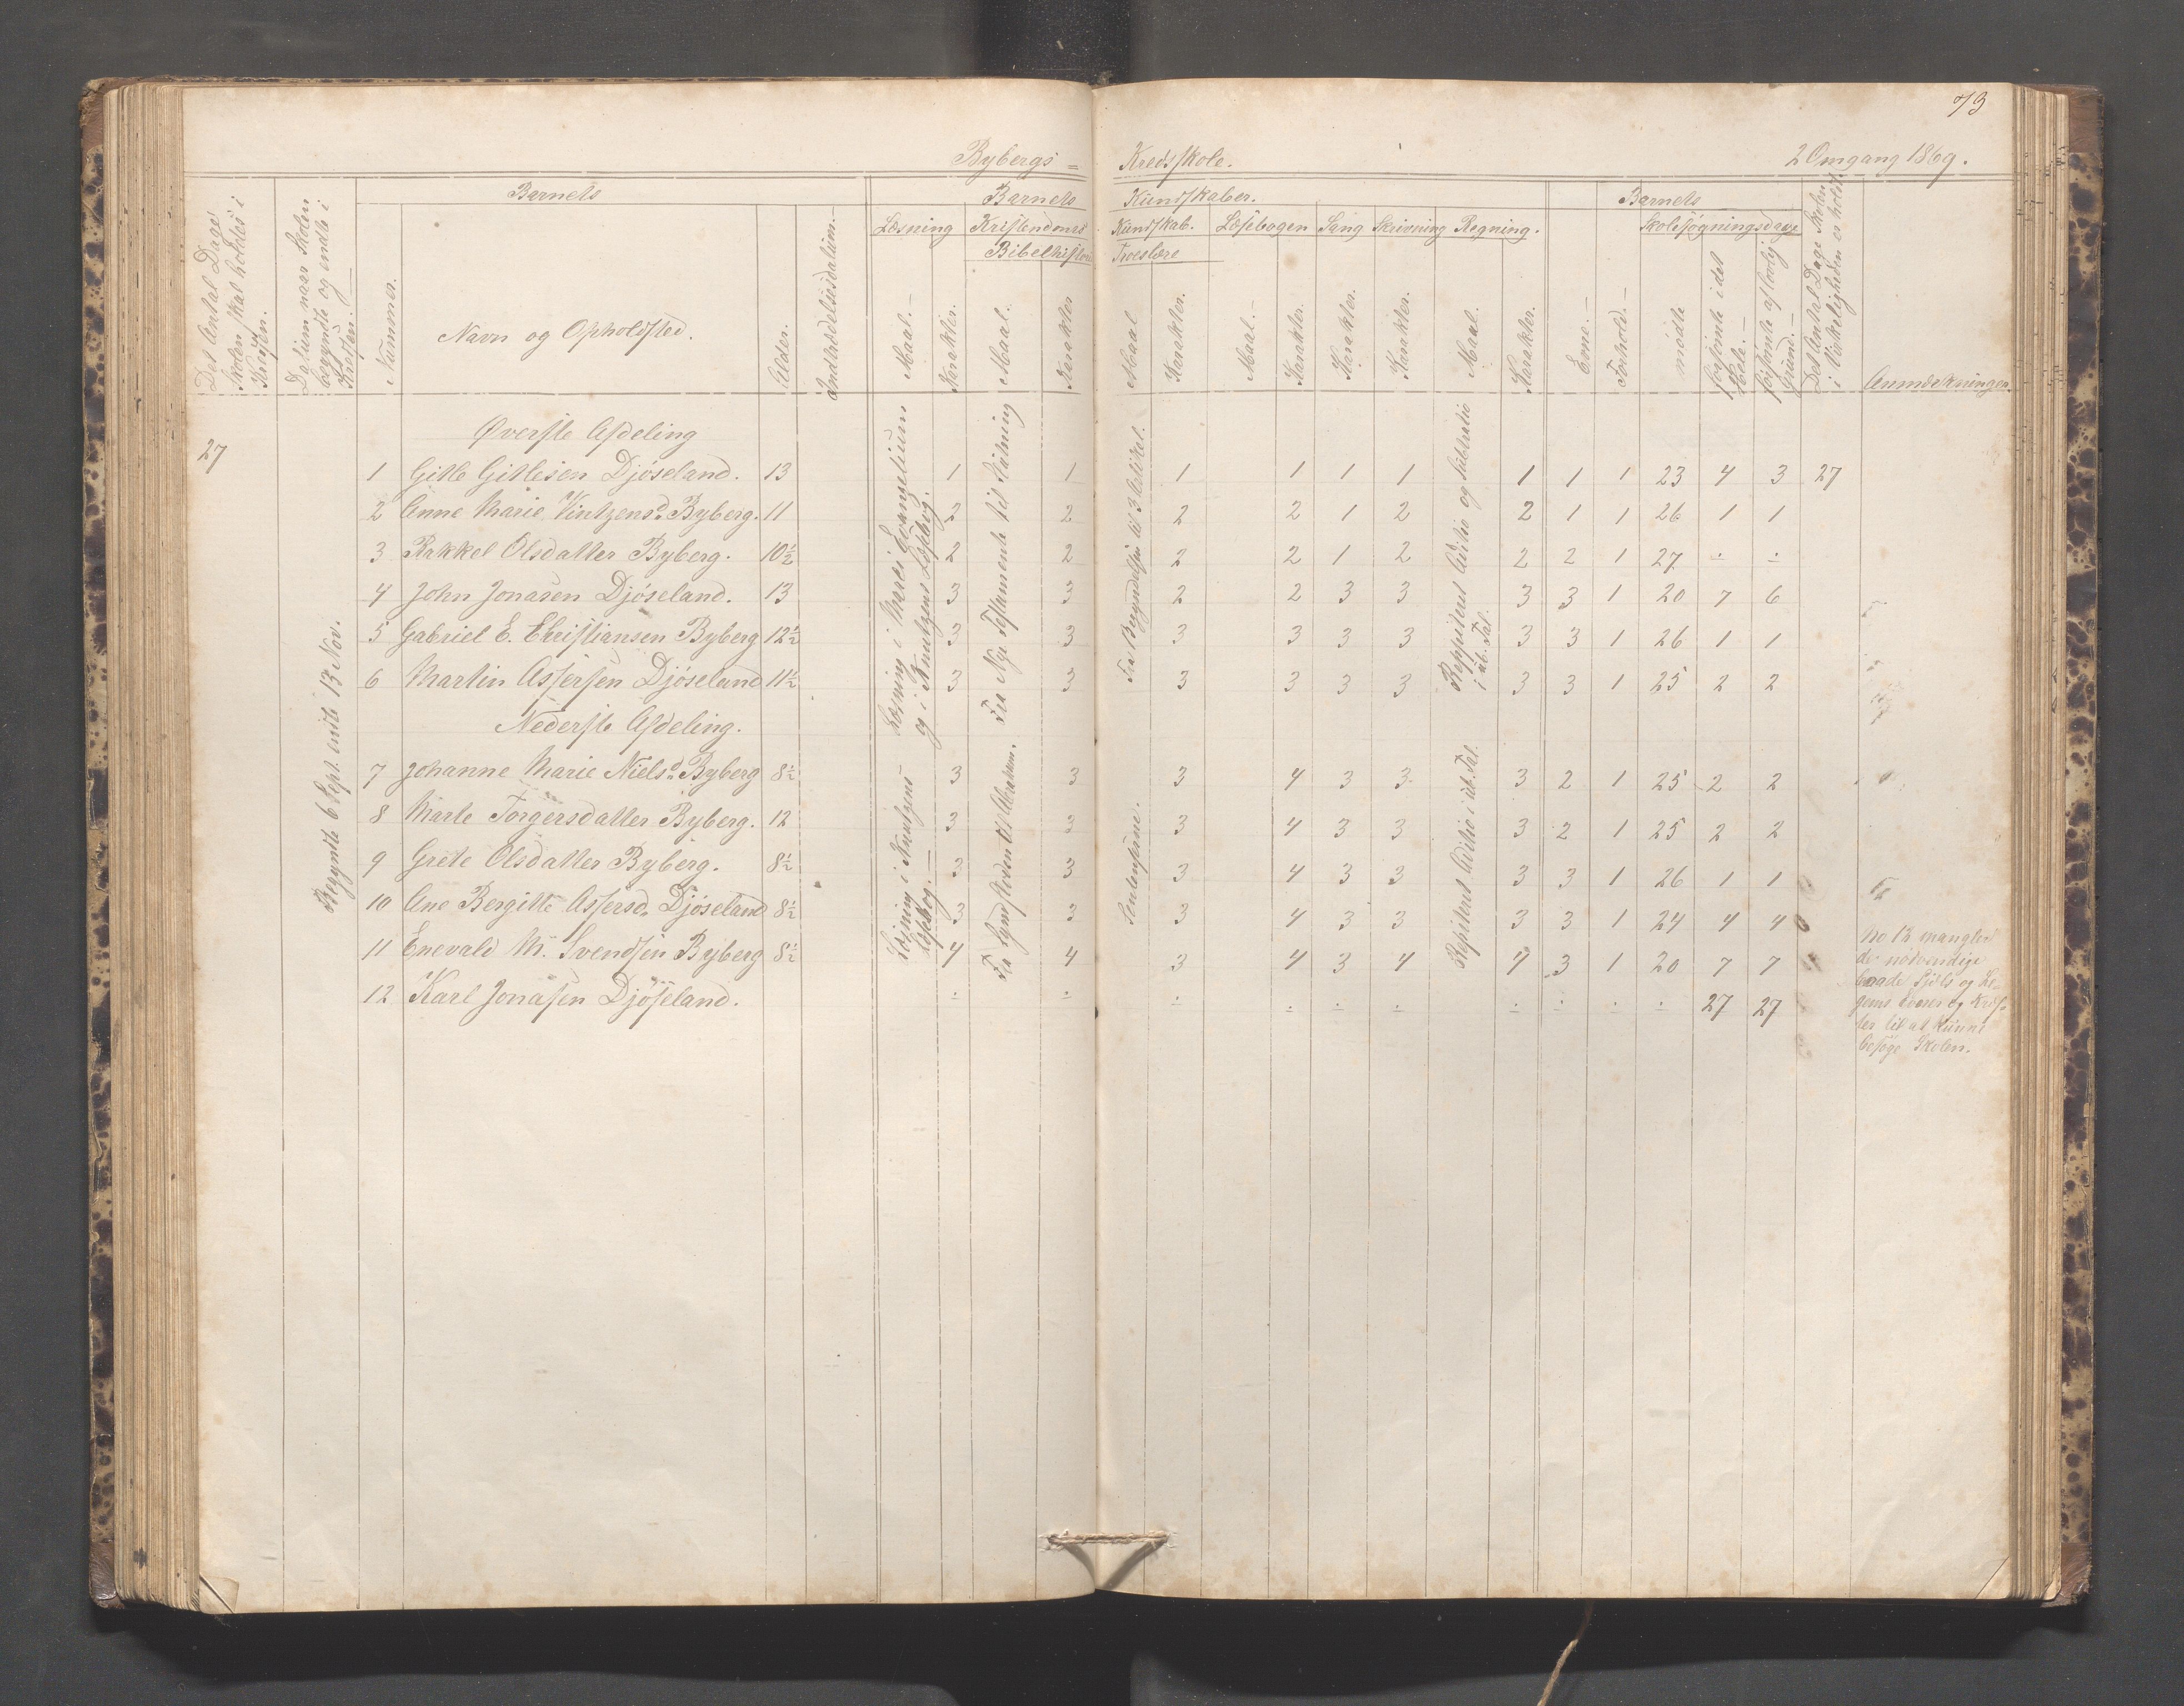 73
Bybergs = Kredsskole. 2 Omgang 1869.
Det Antal Dage Skolen skal holdes i Kredsen.
Datum naar Skolen begyndte og endte i Kredsen.
Barnets
Nummer.
Navn og Opholdsted.
Alder.
Indtrædelsesdatum.
Barnets Kundskaber.
Læsning
Maal.
Karakter.
Kristendoms Kundskab.
Bibelhistorie
Maal.
Karakter
Troeslære
Maal
Karakter.
Læsebogen
Maal.
Karakter.
Sang
Karakter.
Skrivning
Karakter.
Regning.
Maal.
Karakter.
Barnets
Evne.
Forhold.
Skolesøgningsdage
mødte
forsømte i det Hele.
forsømte af lovlig Grund.
Det Antal Dage Skolen i Virkeligheden er holdt
Anmærkninger.
27
Begyndte 6 Sept. endte 13 Nov.
Øverste Afdeling
Læsning i Marci Evangelium og i Knutzens Læsebog.
Fra Nye Testamente til Slutning
Fra Begyndelsen til 3 Artikel.
Reppiteret Aditio og Subtratio i ub. Tal.
1 Gitle Gitlesen Djøseland. 13 1 1 1 1 1 1 1 1 1 23 4 3 27
2 Anne Marie Vintzensd. Byberg. 11 2 2 2 2 1 2 2 1 1 26 1 1
3 Rakkel Olsdatter Byberg. 10½ 2 2 2 2 1 2 2 2 1 27 ÷ ÷
4 John Jonasen Djøseland. 13 3 3 2 2 3 3 3 3 1 20 7 6
5 Gabriel E. Christiansen Byberg 12½ 3 3 3 3 3 3 3 3 1 26 1 1
6 Martin Assersen Djøseland 11½ 3 3 3 3 3 3 3 3 1 25 2 2
Nederste Afdeling.
Læsning i Knutzens Læsebog.
Fra Syndfloden til Abraham.
Sentensene.
Repiteret Aditio i ub. Tal.
7 Johanne Marie Nielsd. Byberg 8½ 3 3 3 4 3 3 3 2 1 25 2 2
8 Marte Torgersdatter Byberg. 12 3 3 3 4 3 3 3 2 1 25 2 2
9 Grete Olsdatter Byberg. 8½ 3 3 3 4 3 3 3 3 1 26 1 1
10 Ane Bergitte Assersd. Djøseland 8½ 3 3 3 4 3 3 3 3 1 24 4 4
11 Enevald M. Svendsen Byberg 8½ 4 4 3 4 3 4 4 3 1 20 7 7
12 Karl Jonasen Djøseland. ÷ ÷ ÷ ÷ ÷ ÷ ÷ ÷ ÷ ÷ 27 27
No 12 mangler
de nødvendige
baade Sjels og Le-
gems Evner og Kræf-
ter til at kunne
besøge Skolen.